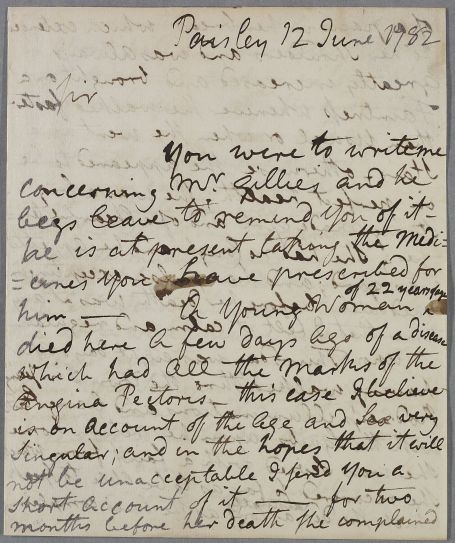 Paisley 12 June 1782
Sir
You were to write me
concerning Mr. Gillies and he
begs leave to remind you of it —
he is at present taking the Medi-
=cines you have prescribed for
him — A Young Woman of 22 years of age
died here a few days ago of a disease
which had all the marks of the
Angina Pectoris — this case I believe
is on account of the Age and Sex very
singular; and in the hopes that it will
not be unacceptable I send You a
short account of it — for two
months before her death she complained